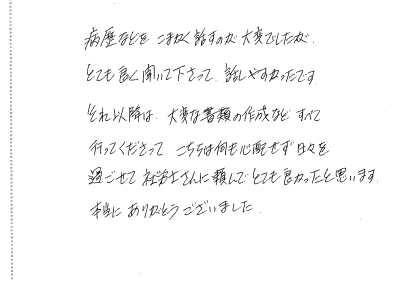 病歴などを こまかく話すのが 大変でしたが、
とても良く聞いて下さって、話しやすかったです。
それ以降は、大変な書類の作成など すべて
行ってくださって こちらは何も心配せず日々を
過ごせて 社労士さんに頼んで とても良かったと思います。
本当に ありがとうございました。